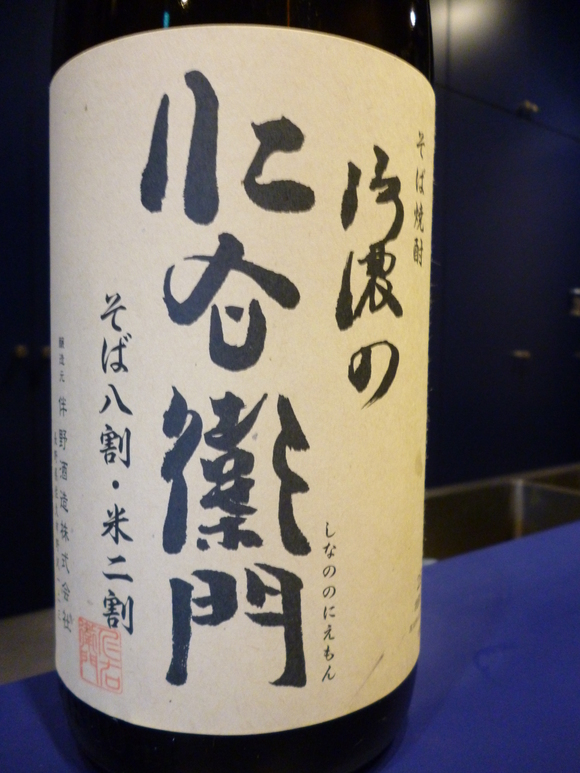 そば焼酎
信濃の
仁右衛門
しなののにえもん
そば八割・米二割
醸造元 伴野酒造株式会社
仁右衛門